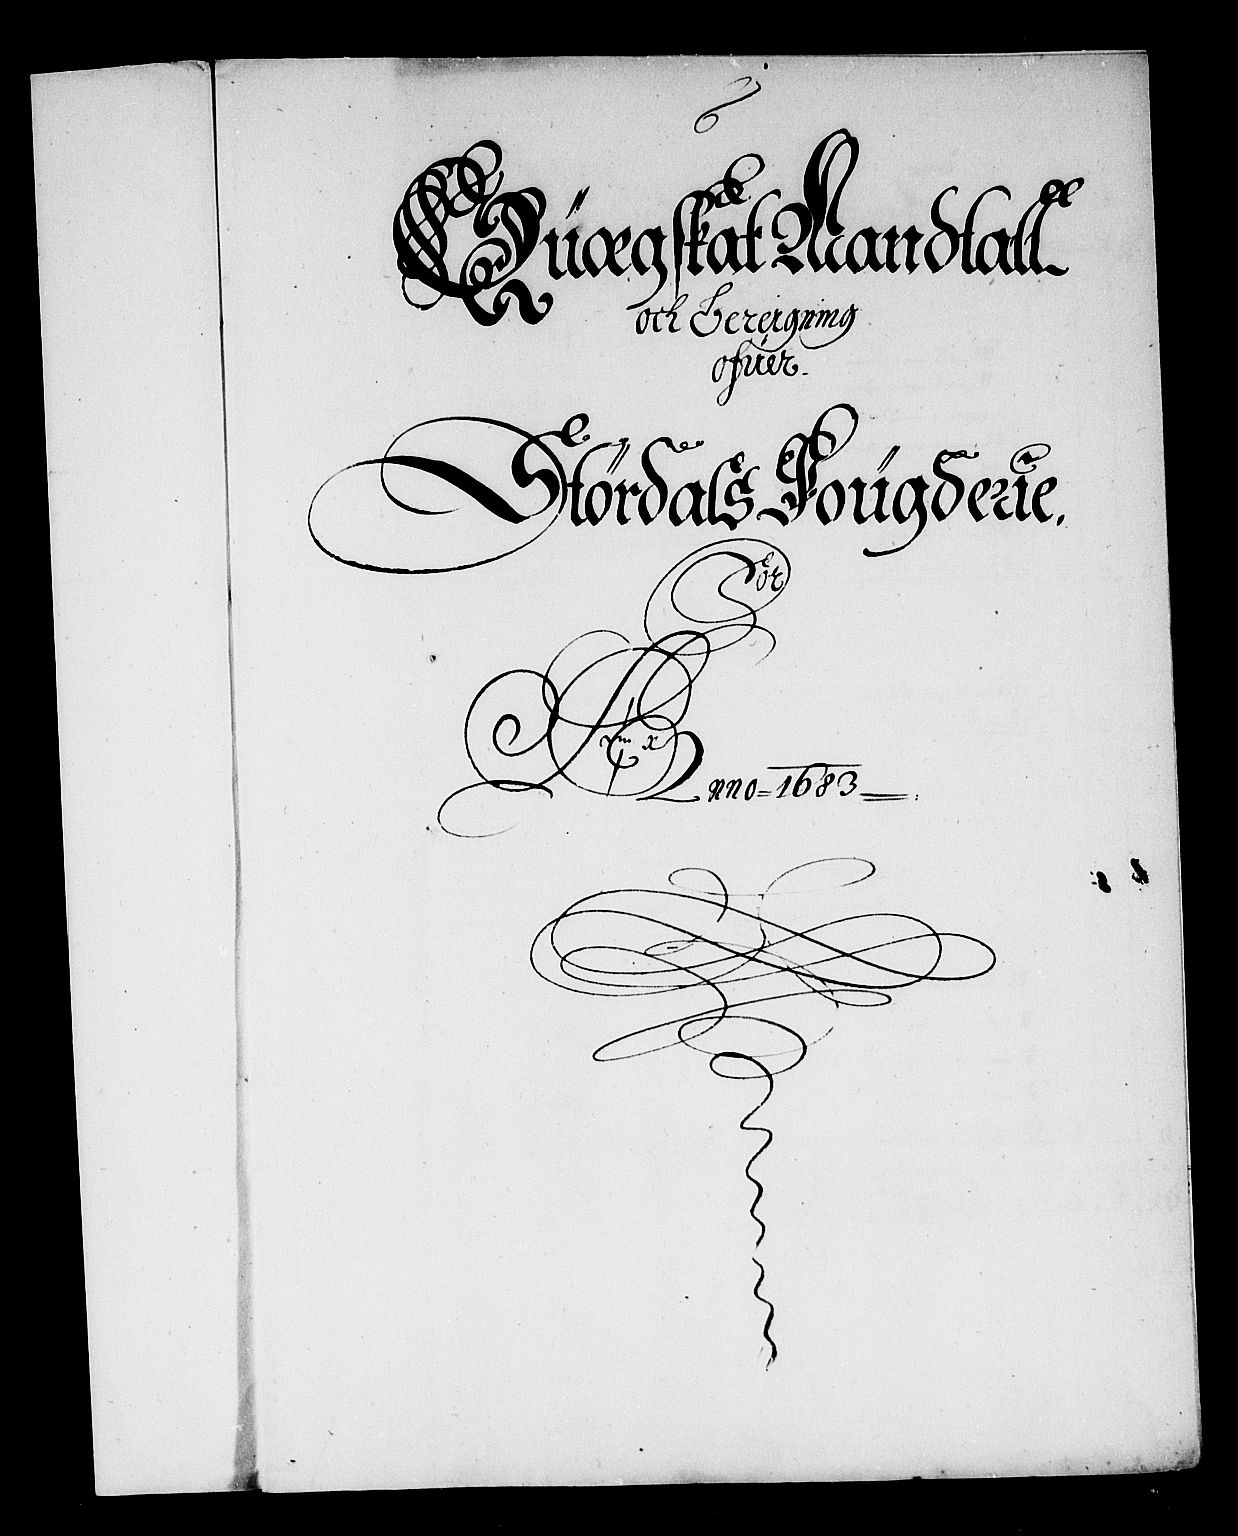 6
Qüægskat Mandtall
och bereigning
ofüer.
Stördals Fougderie.
För
Anno = 1683